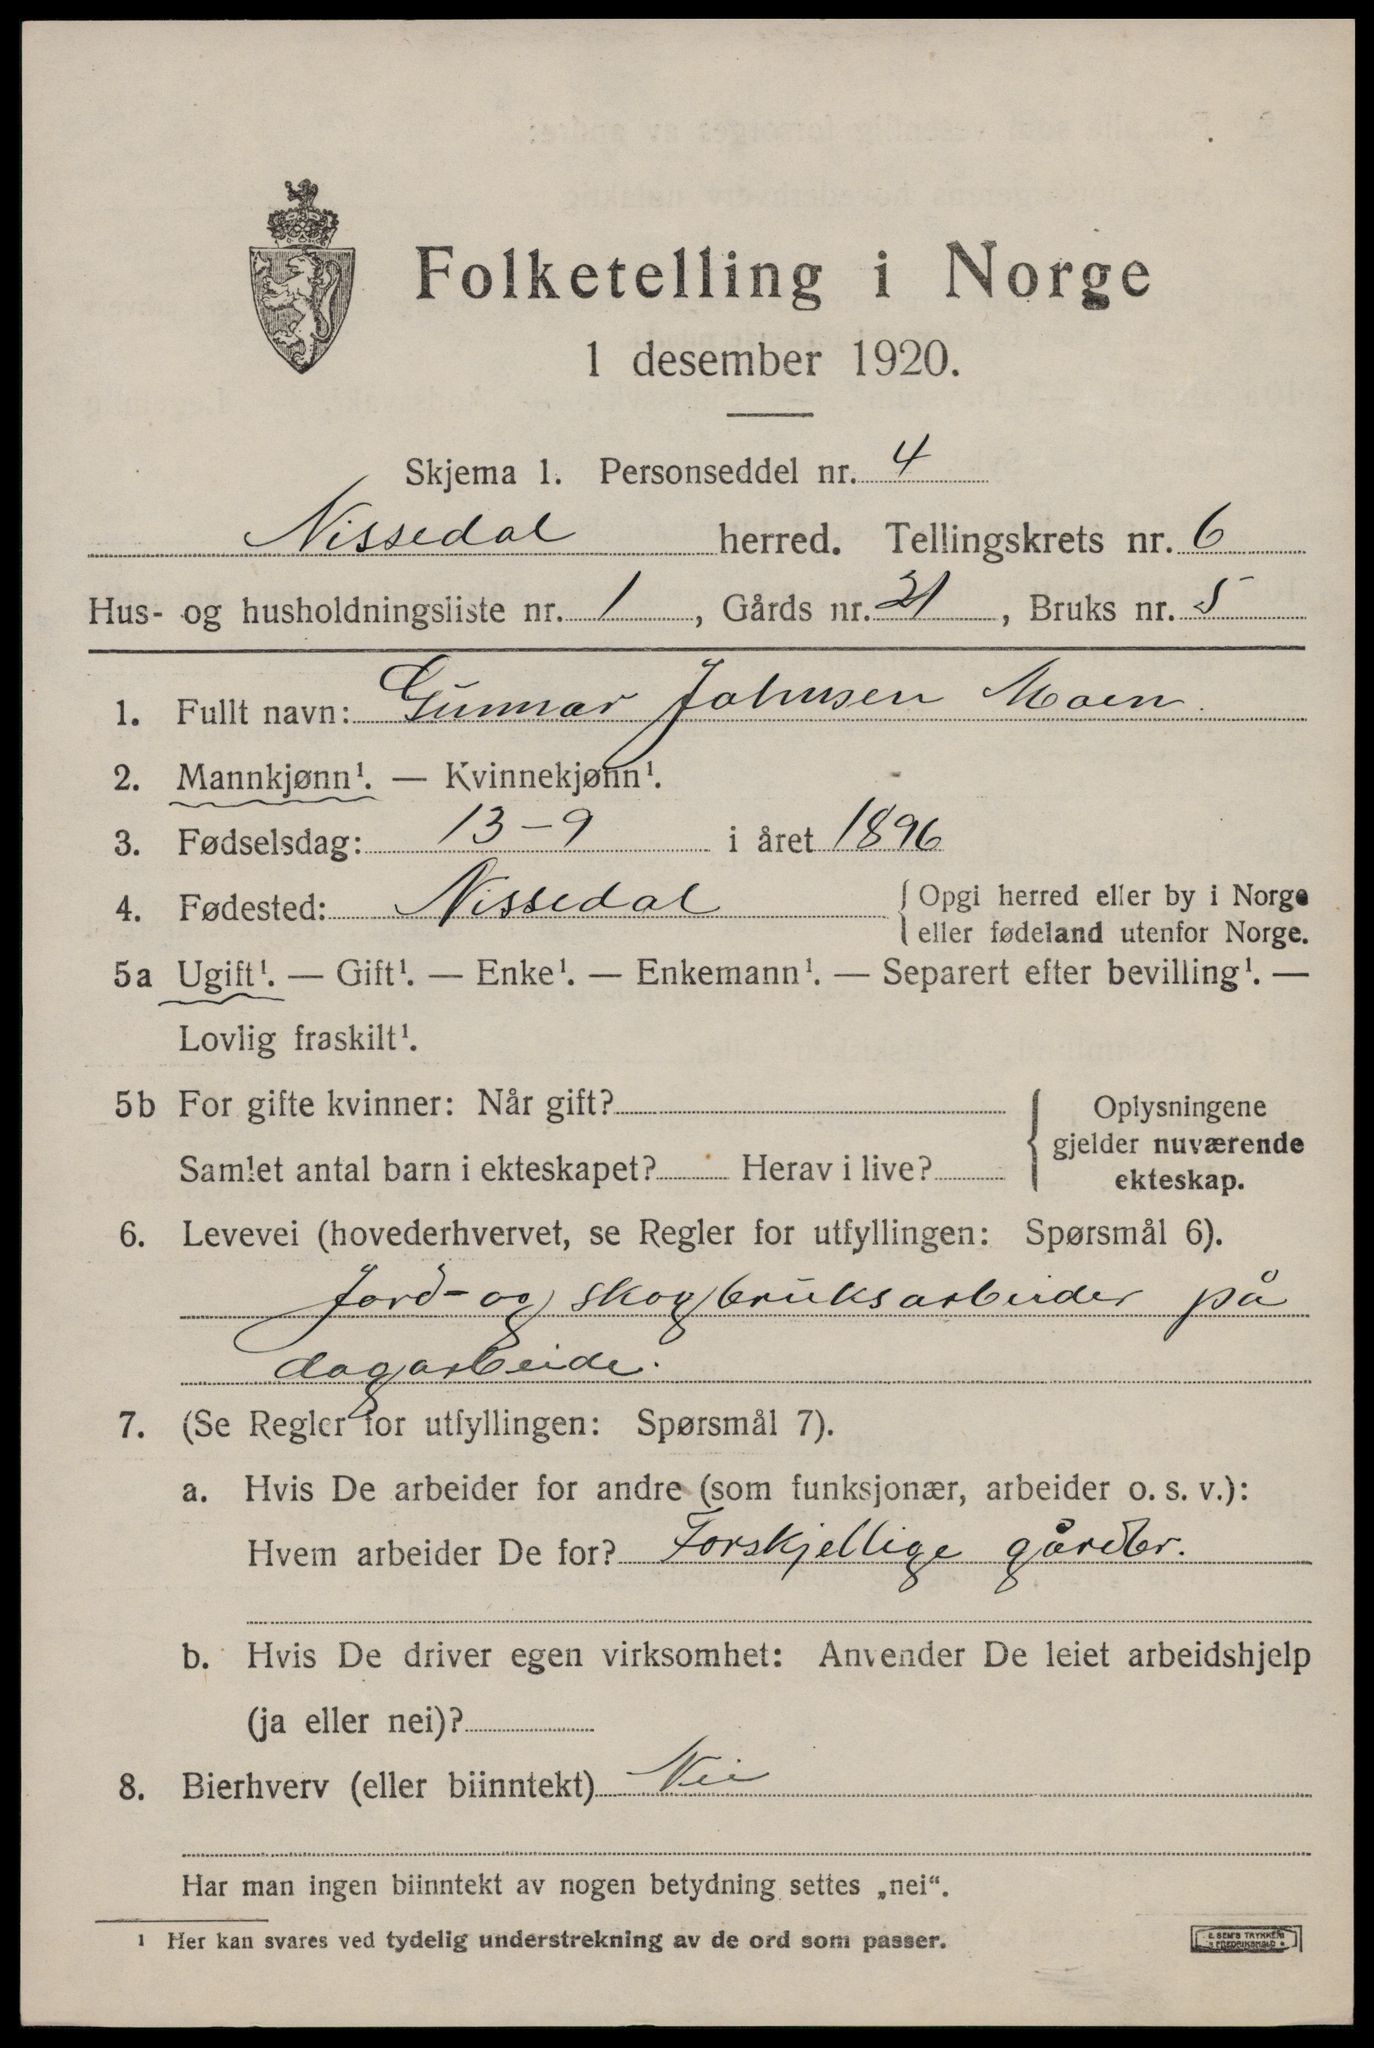 Folketelling i Norge
1 desember 1920.
Skjema 1. Personseddel nr. 4
Nissedal herred. Tellingskrets nr. 6
Hus- og husholdningsliste nr. 1, Gårds nr. 21, Bruks nr. 5
1. Fullt navn: Gunnar Johnsen Moen.
2. Mannkjønn¹. — Kvinnekjønn¹.
3. Fødselsdag: 13-9 i året 1896
4. Fødested: Nissedal { Opgi herred eller by i Norge
eller fødeland utenfor Norge.
5a Ugift¹. — Gift¹. — Enke¹. — Enkemann¹. — Separert efter bevilling¹. —
Lovlig fraskilt¹.
5b For gifte kvinner: Når gift? { Oplysningene
gjelder nuværende
Samlet antal barn i ekteskapet? Herav i live? ekteskap.
6. Levevei (hovederhvervet, se Regler for utfyllingen: Spørsmål 6).
Jord- og skogbruksarbeider på
dagarbeide.
7. (Se Regler for utfyllingen: Spørsmål 7).
a. Hvis De arbeider for andre (som funksjonær, arbeider o. s. v.):
Hvem arbeider De for? Forskjellige gårder.
b. Hvis De driver egen virksomhet: Anvender De leiet arbeidshjelp
(ja eller nei)?
8. Bierhverv (eller biinntekt) Nei
Har man ingen biinntekt av nogen betydning settes „nei“.
¹ Her kan svares ved tydelig understrekning av de ord som passer.
E. SEM'S TRYKKERI
FREDRIKSHALD